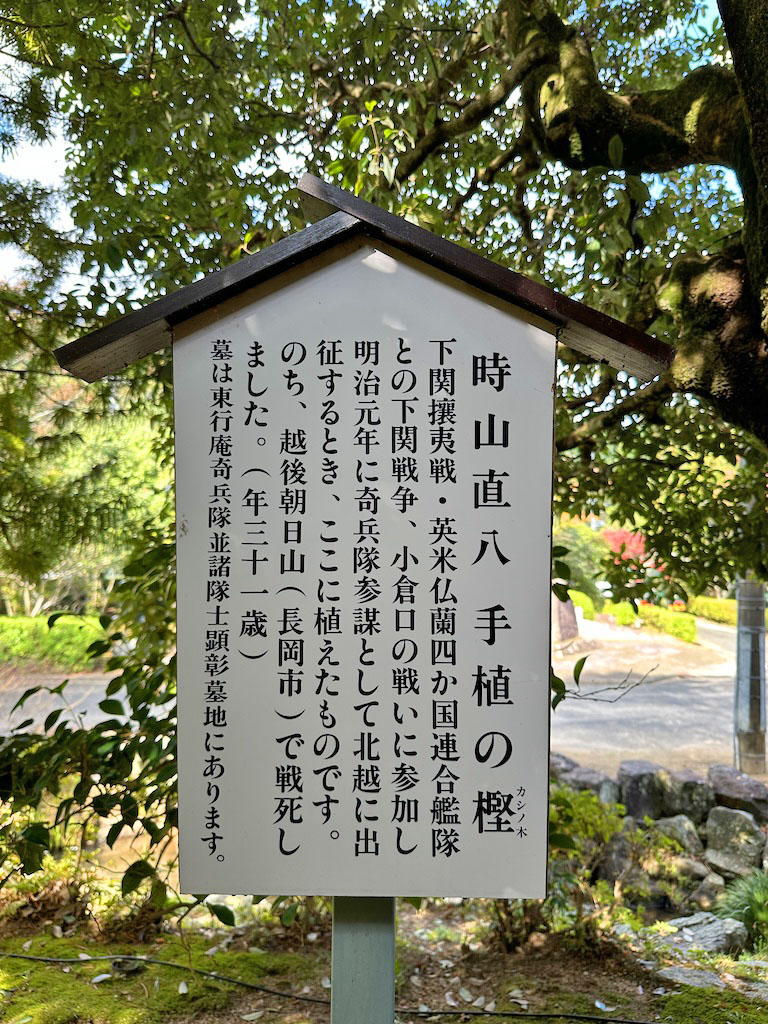 時山直八 手植の樫
カシノ木
下関攘夷戦・英米仏蘭四か国連合艦隊
との下関戦争、小倉口の戦いに参加し
明治元年に奇兵隊参謀として北越に出
征するとき、ここに植えたものです。
のち、越後朝日山(長岡市)で戦死し
ました。(年三十一歳)
墓は東行庵奇兵隊並諸隊士顕彰墓地にあります。